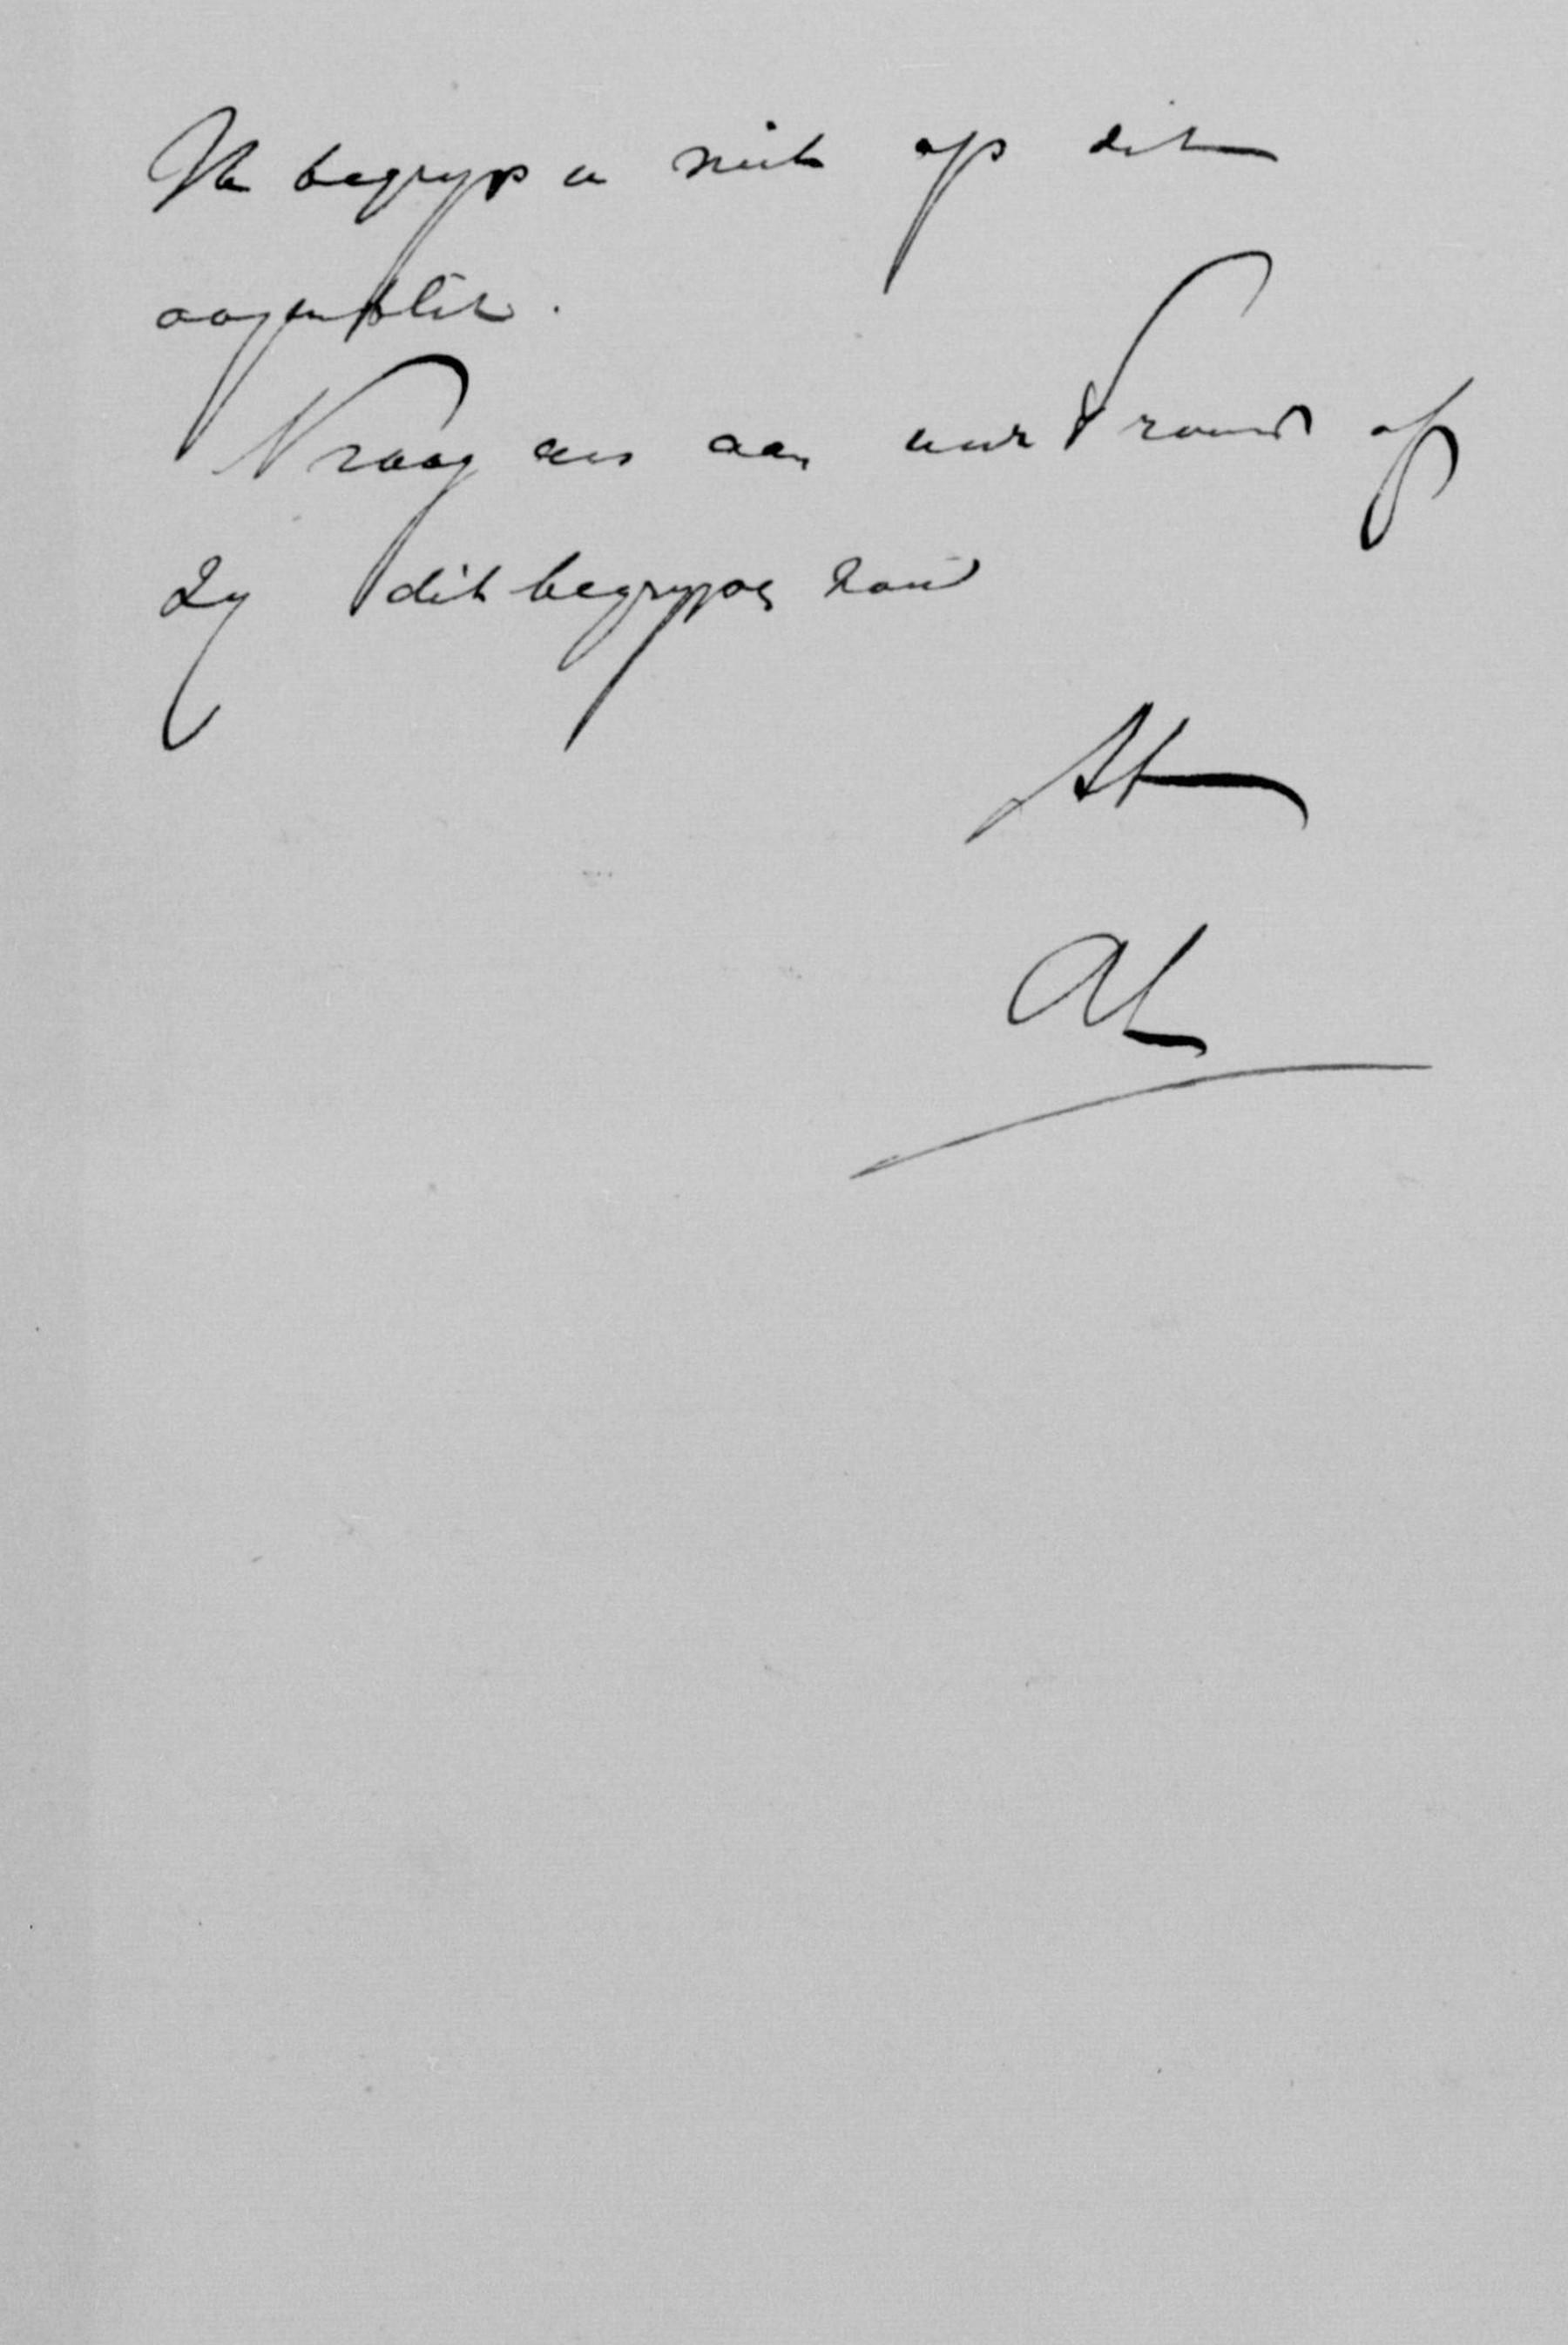 Ik begryp u niet op dit
oogenblik.
Vraag eens aan uwe Vrouw of
Zy dit begrypen zou